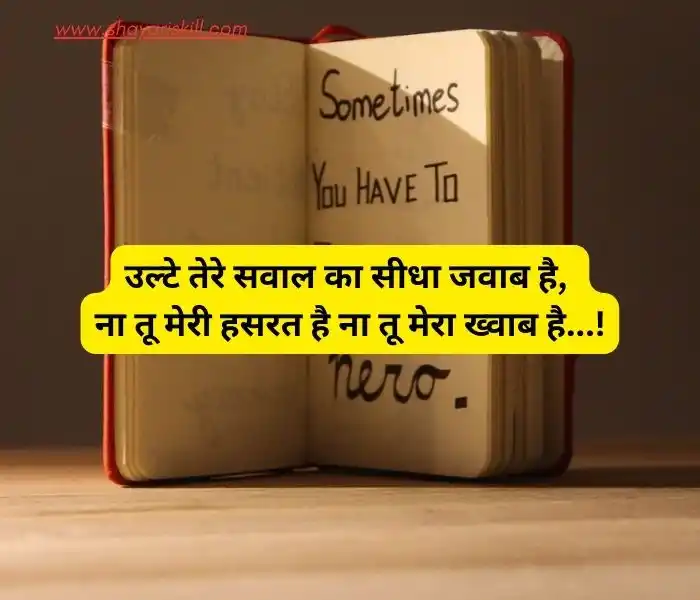 www.shayariskill.com
Sometimes
You HAVE To
उल्टे तेरे सवाल का सीधा जवाब है,
ना तू मेरी हसरत है ना तू मेरा ख्वाब है...!
hero.